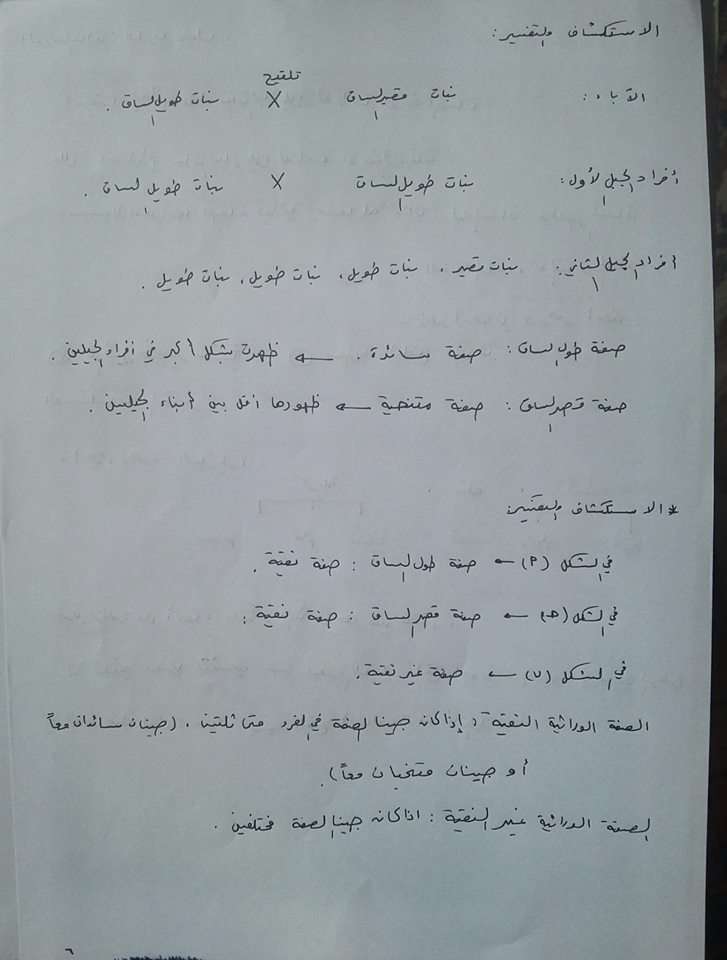 الاستكشاف والتفسير:
تلقيح
الآباء: نبات قصير الساق X نبات طويل الساق.
أفراد الجيل الأول: نبات طويل الساق X نبات طويل الساق.
أفراد الجيل الثاني: نبات قصير، نبات طويل، نبات طويل، نبات طويل.
صفة طول الساق: صفة سائدة. ← ظهرت بشكل أكبر في أفراد الجيلين.
صفة قصر الساق: صفة متنحية ← ظهورها أقل بين أبناء الجيلين.
* الاستكشاف والتفسير:
في الشكل (أ) ← صفة طول الساق: صفة نقية.
في الشكل (جـ) ← صفة قصر الساق: صفة نقية:
في الشكل (ب) ← صفة غير نقية.
الصفة الوراثية النقية: إذا كان جينا الصفة في الفرد متماثلين، (جينان سائدان معاً
أو جينان متنحيان معاً).
الصفة الوراثية غير النقية: اذا كان جينا الصفة مختلفين.
٦